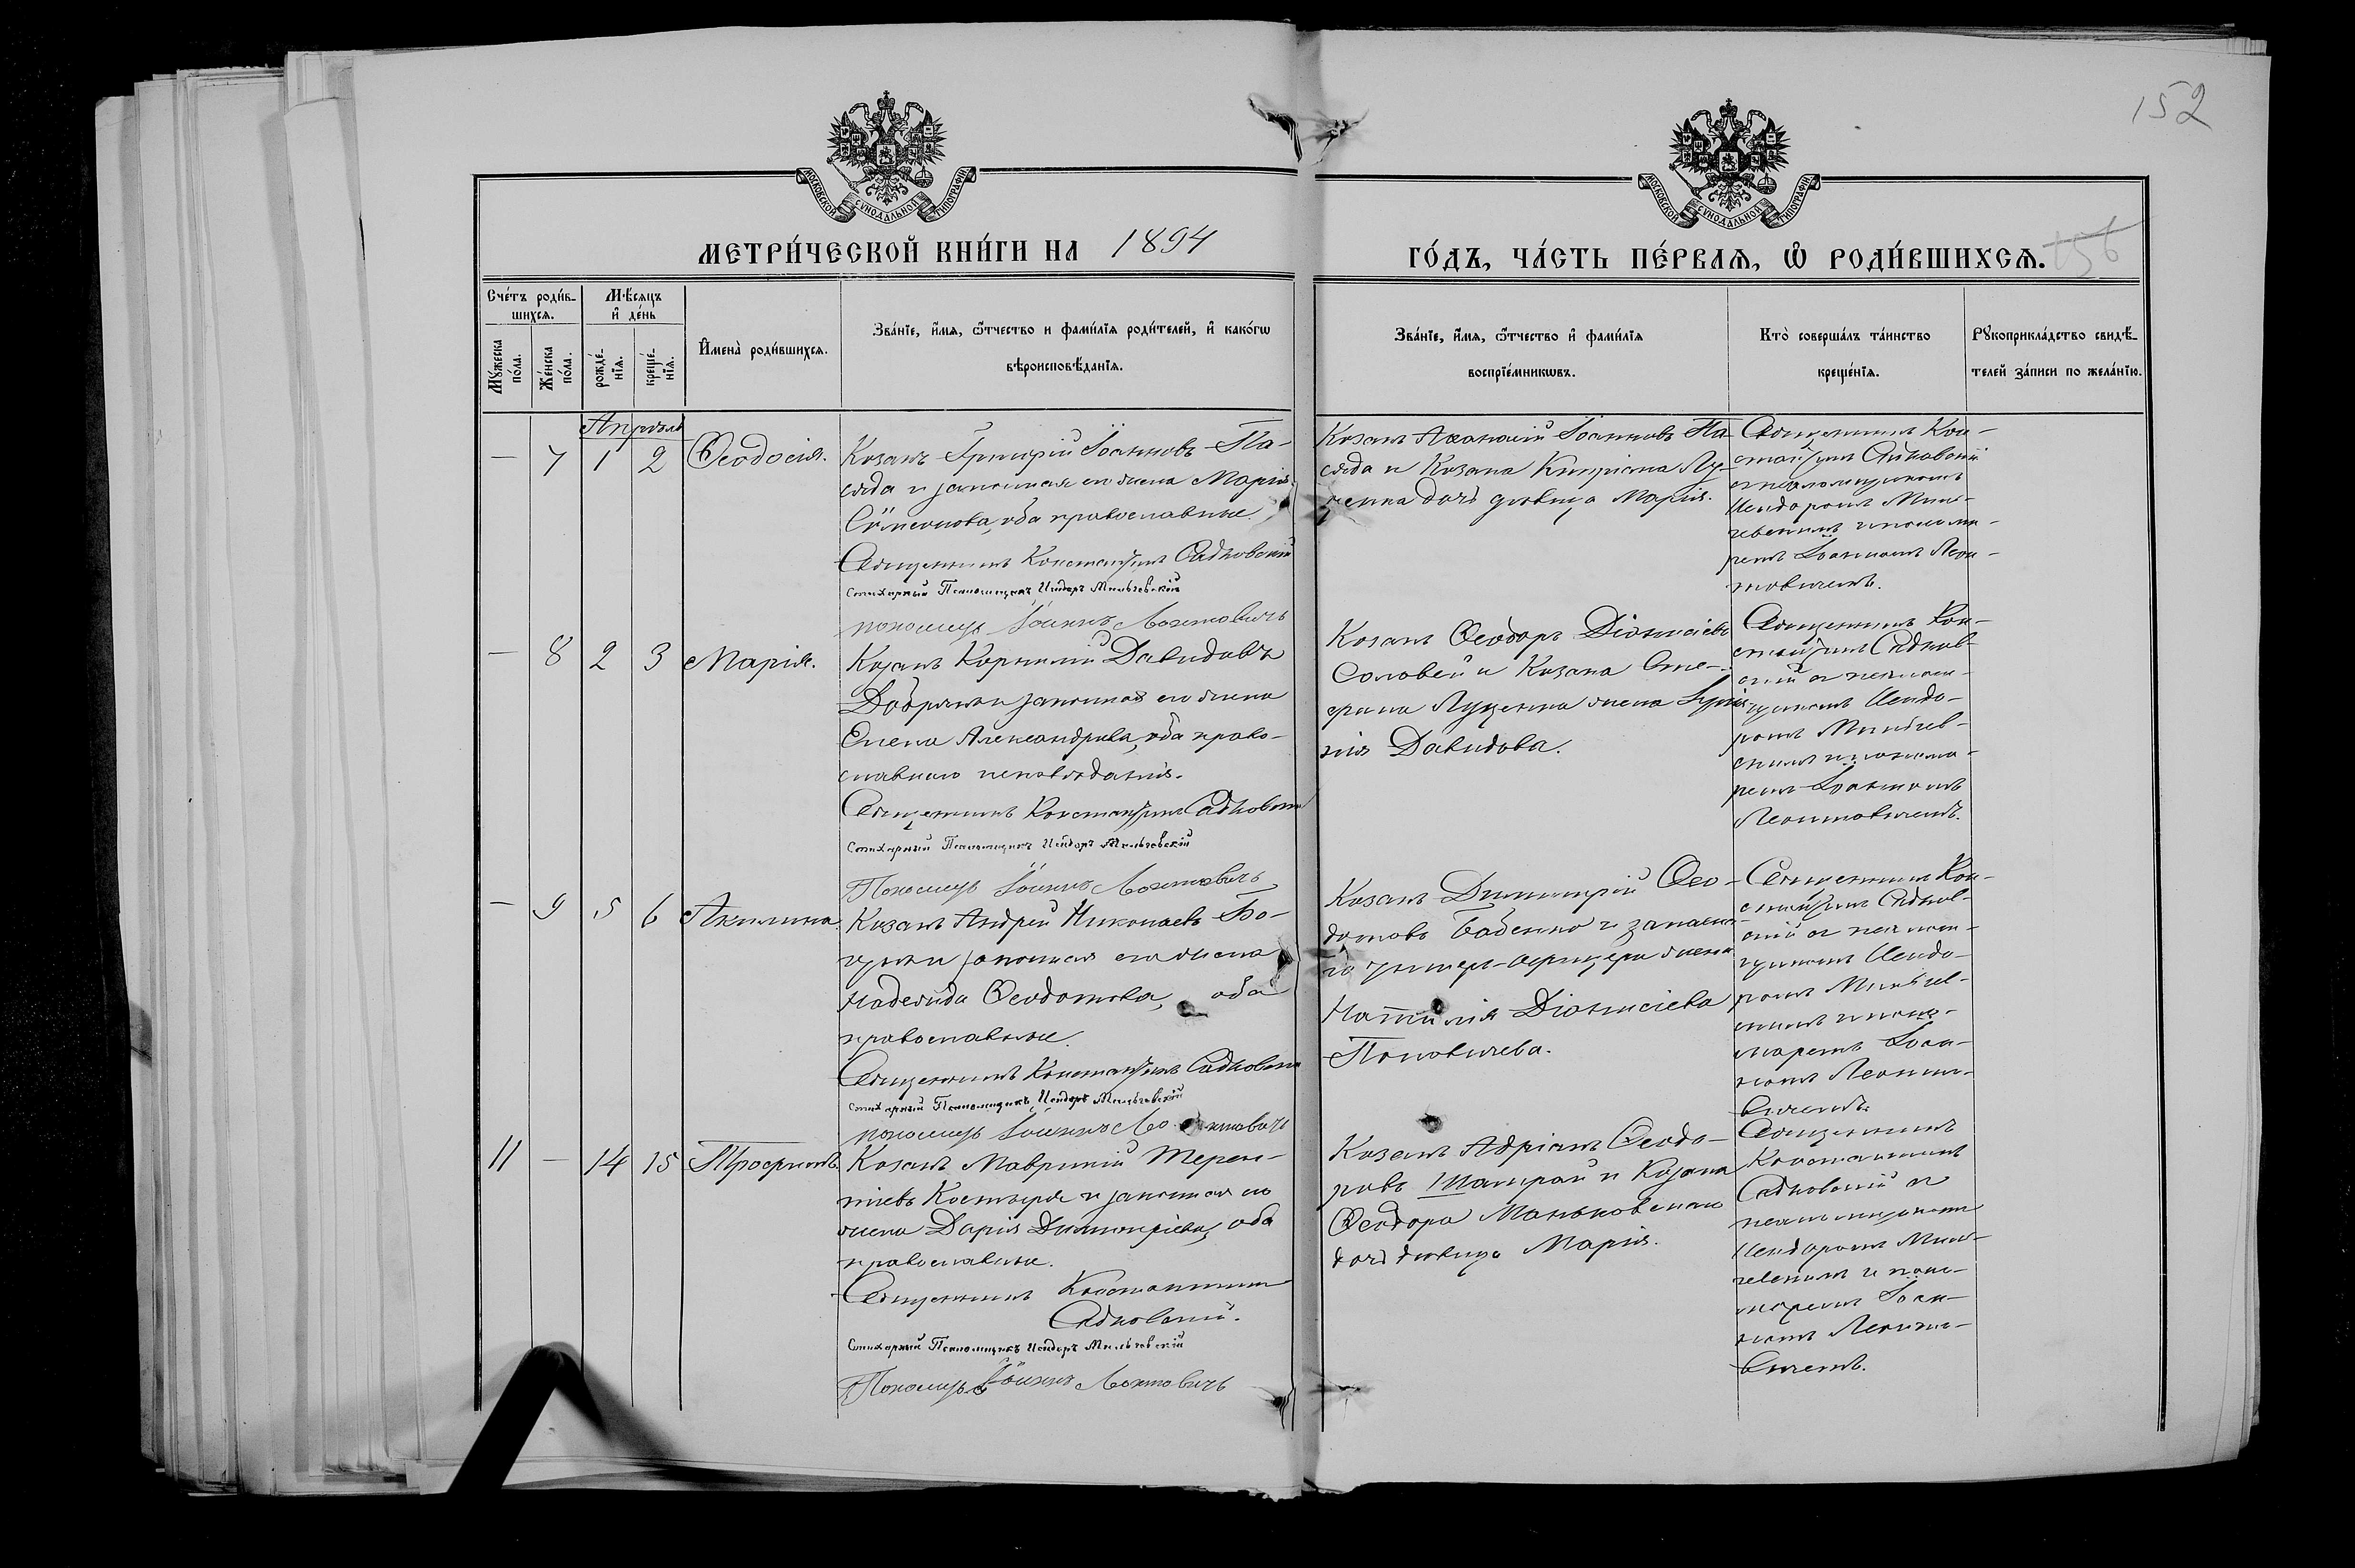 152
МОСКОВСКОЙ СѴНОДАЛЬНОЙ ТИПОГРАФІИ
МОСКОВСКОЙ СѴНОДАЛЬНОЙ ТИПОГРАФІИ
МЕТРИ́ЧЕСКОЙ КНИ́ГИ НА 1894
ГО́ДЪ, ЧА́СТЬ ПЕ́РВАѦ, Ѡ҆ РОДИ́ВШИХСѦ.
156
Сче́тъ роди́в-
шихсѧ.
Мѣ́сѧцъ
и҆ де́нь
Му́жеска
по́ла.
Же́нска
по́ла.
рожде́-
нїѧ.
креще́-
нїѧ.
И҆мена̀ роди́вшихсѧ.
Зва́нїе, и҆́мѧ, ѻ҆́тчество и фами́лїѧ роди́телей, и҆ како́гѡ
вѣроисповѣ́данїѧ.
Зва́нїе, и҆́мѧ, ѻ҆́тчество и҆ фами́лїѧ
воспрїе́мникѡвъ.
Кто̀ соверша́лъ та́инство
креще́нїѧ.
Рꙋкоприкла́дство свидѣ́-
телей за́писи по жела́нїю.
Апрѣль
— 7 1 2 Ѳеодосія.
Козакъ Григорій Іоанновъ Па-
сяда и законная его жена Марія
Сѵмеонова, оба православные.
Священникъ Константинъ Садковскій
Стихарный Псаломщикъ Исидоръ Мильчевскій
пономарь Іоаннъ Леонтовичъ
Козакъ Аѳанасій Іоанновъ Па-
сяда и Козака Кипріана Лу-
ценка дочь дѣвица Марія.
Священникъ Кон-
стантинъ Садковскій
съ псаломщикомъ
Исидоромъ Миль-
чевскимъ и понома-
ремъ Іоанномъ Леон-
товичемъ.
— 8 2 3 Марія.
Козакъ Корнилій Давидовъ
Добряк и законная его жена
Елена Александрова, оба право-
славнаго исповѣданія.
Священникъ Константинъ Садковскій
Стихарный Псаломщикъ Исидоръ Мильчевскій
Пономарь Іоаннъ Леонтовичъ
Козакъ Ѳеодоръ Діонисіевъ
Соловей и Козака Сте-
фана Луценка жена
Давидова.
Священникъ Кон-
стантинъ Садков-
скій съ псалом-
щикомъ Исидо-
ромъ Мильчев-
скимъ и понома-
ремъ Іоанномъ
Леонтовичемъ.
— 9 5 6 Акилина.
Козакъ Андрей Николаевъ Бо-
и законная его жена
Надежда Ѳеодотова, оба
православные.
Священникъ Константинъ Садковскій
Стихарный Псаломщикъ Исидоръ Мильчевскій
пономарь Іоаннъ Леонтовичъ
Козакъ Димитрій Ѳео-
дотовъ Бабенко и запасна-
го унтеръ-офицера жена
Наталія Діонисіева
Поповичева.
Священникъ Кон-
стантинъ Садков-
скій съ псалом-
щикомъ Исидо-
ромъ Мильчев-
скимъ и поно-
маремъ Іоан-
номъ Леонто-
вичемъ.
11 — 14 15 Трофимъ.
Козакъ Маврикій Терен-
тіевъ Костыря и законная его
жена Дарія Димитріева, оба
православные.
Священникъ Константинъ
Садковскій.
Стихарный Псаломщикъ Исидоръ Мильчевскій
Пономарь Іоаннъ Леонтовичъ
Козакъ Адріанъ Ѳеодо-
ровъ Шатрай и Козака
Ѳеодора Маньковскаго
дочь дѣвица Марія.
Священникъ
Константинъ
Садковскій съ
псаломщикомъ
Исидоромъ Миль-
чевскимъ и поно-
маремъ Іоан-
номъ Леонто-
вичемъ.